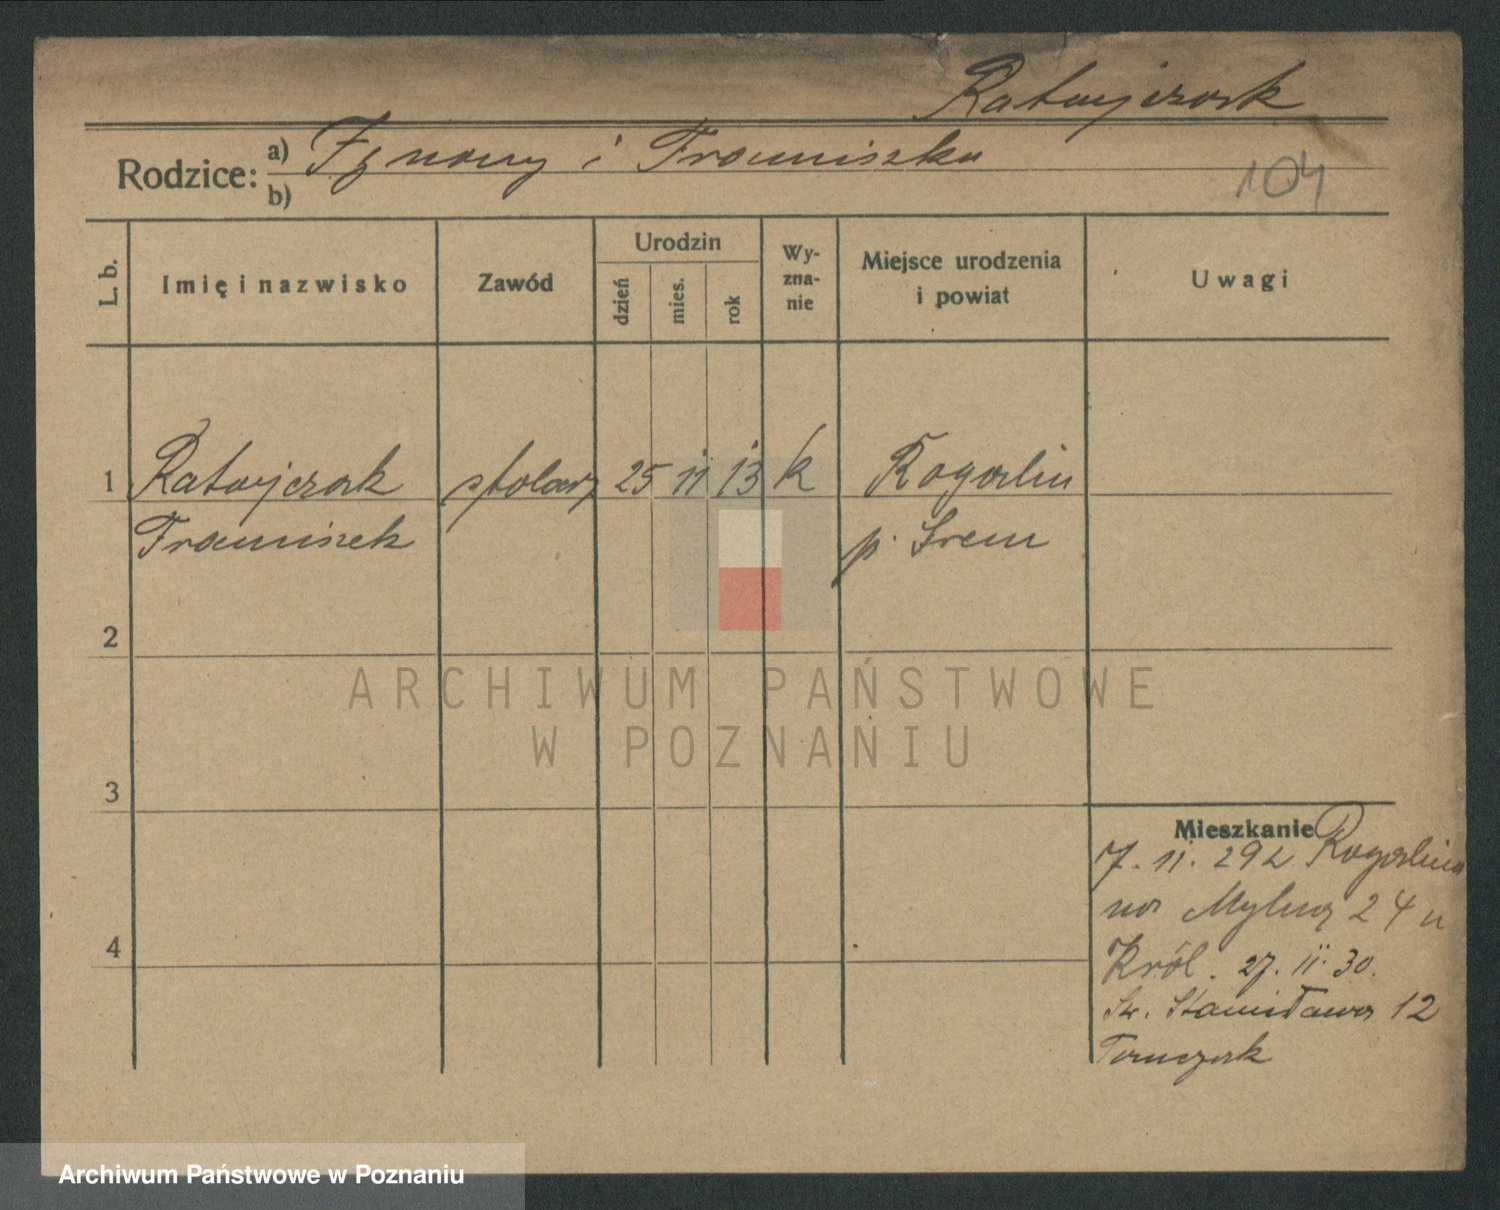 Ratajczak
Rodzice: a) Ignacy i Franciszka
b)
104
L. b.
Imię i nazwisko
Zawód
Urodzin
dzień
mies.
rok
Wy-
zna-
nie
Miejsce urodzenia
i powiat
Uwagi
1 Ratajczak stolarz 25 11 13 k Rogalin
Franciszek p. Śrem
2
3
4
Mieszkanie
7. 11. 29 z Rogalina
na Mylną 24 u
Król. 27. II. 30.
Św. Stanisława 12
ARCHIWUM PAŃSTWOWE
W POZNANIU
Archiwum Państwowe w Poznaniu